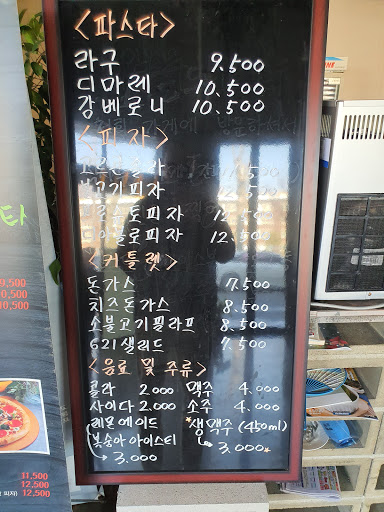 <파스타>
라구 9.500
디마레 10.500
감베로니 10.500
<피자>
불고기피자 12.500
피자
피자 12.500
<커틀렛>
돈가스 7.500
치즈돈가스 8.500
소불고기필라프 8.500
621샐러드 7.500
<음료 및 주류>
콜라 2.000 맥주 4.000
사이다 2.000 소주 4.000
레몬에이드 *생맥주 (450ml)
복숭아 아이스티 ↳ 3.000*
↳ 3.000
9.500
10.500
10.500
11.500
12.500
피자) 12.500